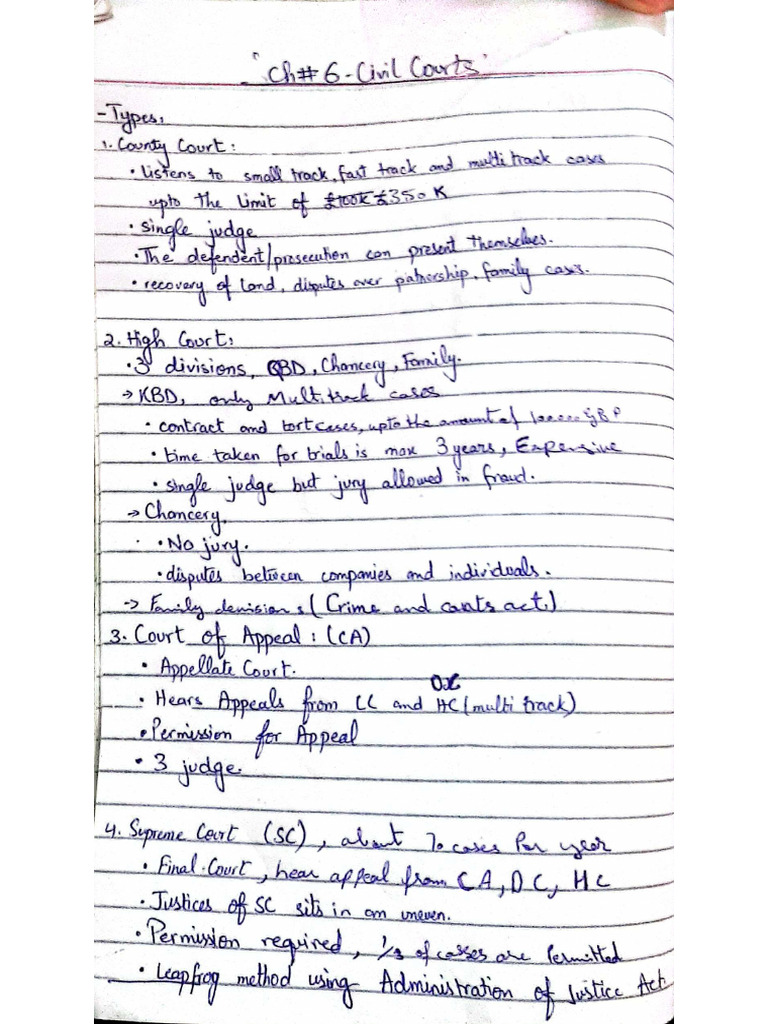 "Ch# 6 - Civil Courts"
- Types:
1. County Court:
• listens to small track, fast track and multi track cases
upto the limit of £100K £350K
• single judge
• The defendent/prosecution can present themselves.
• recovery of land, disputes over patnership, family cases.
2. High Court:
• 3 divisions, QBD, Chancery, Family.
→ KBD, only Multi track cases
• contract and tort cases, upto the amount of GBP
• time taken for trials is max 3 years, Expensive
• single judge but jury allowed in fraud.
→ Chancery.
• No jury.
• disputes between companies and individuals.
→ Family devision: (Crime and act.)
3. Court of Appeal: (CA)
• Appellate Court.
• Hears Appeals from CC and HC (multi track)
• Permission for Appeal
• 3 judge.
4. Supreme Court (SC), about 70 cases Per year
• Final Court, hear appeal from CA, DC, HC
• Justices of SC sits in an uneven.
• Permission required, 1/3 of cases are Permitted
• Leapfrog method using Administration of Justice Act